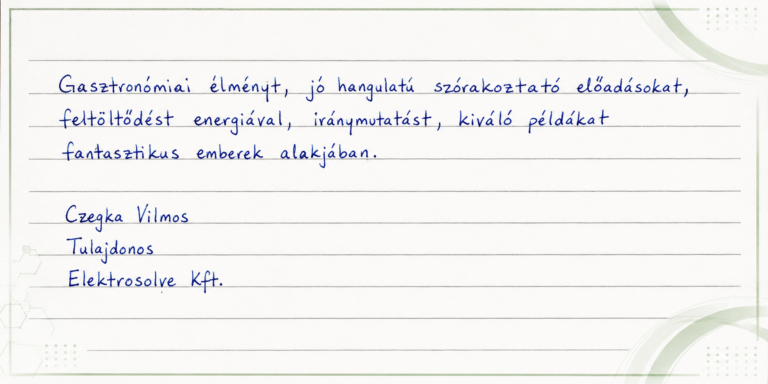 Gasztronómiai élményt, jó hangulatú szórakoztató előadásokat,
feltöltődést energiával, iránymutatást, kiváló példákat
fantasztikus emberek alakjában.
Czegka Vilmos
Tulajdonos
Elektrosolve Kft.